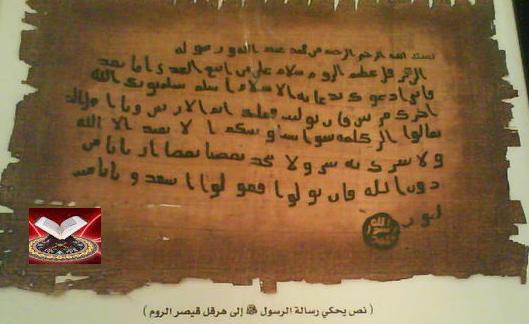 بسم الله الرحمن الرحيم من محمد عبد الله ورسوله
الى هرقل عظيم الروم سلام على من اتبع الهدى اما بعد
فاني ادعوك بدعاية الاسلام اسلم تسلم يوتك الله
اجرك مرتين فان توليت فعليك اثم الاريسين ويا اهل الك
تعالوا الى كلمة سوا بيننا وبينكم ا لا نعبد الا الله
ولا نشرك به شيا ولا يتخذ بعضنا بعضا اربابا من
دون الله فان تولوا فقولوا اشهدوا بانا مس
لمون
الله
رسول
محمد
( نص يحكي رسالة الرسول ﷺ إلى هرقل قيصر الروم )